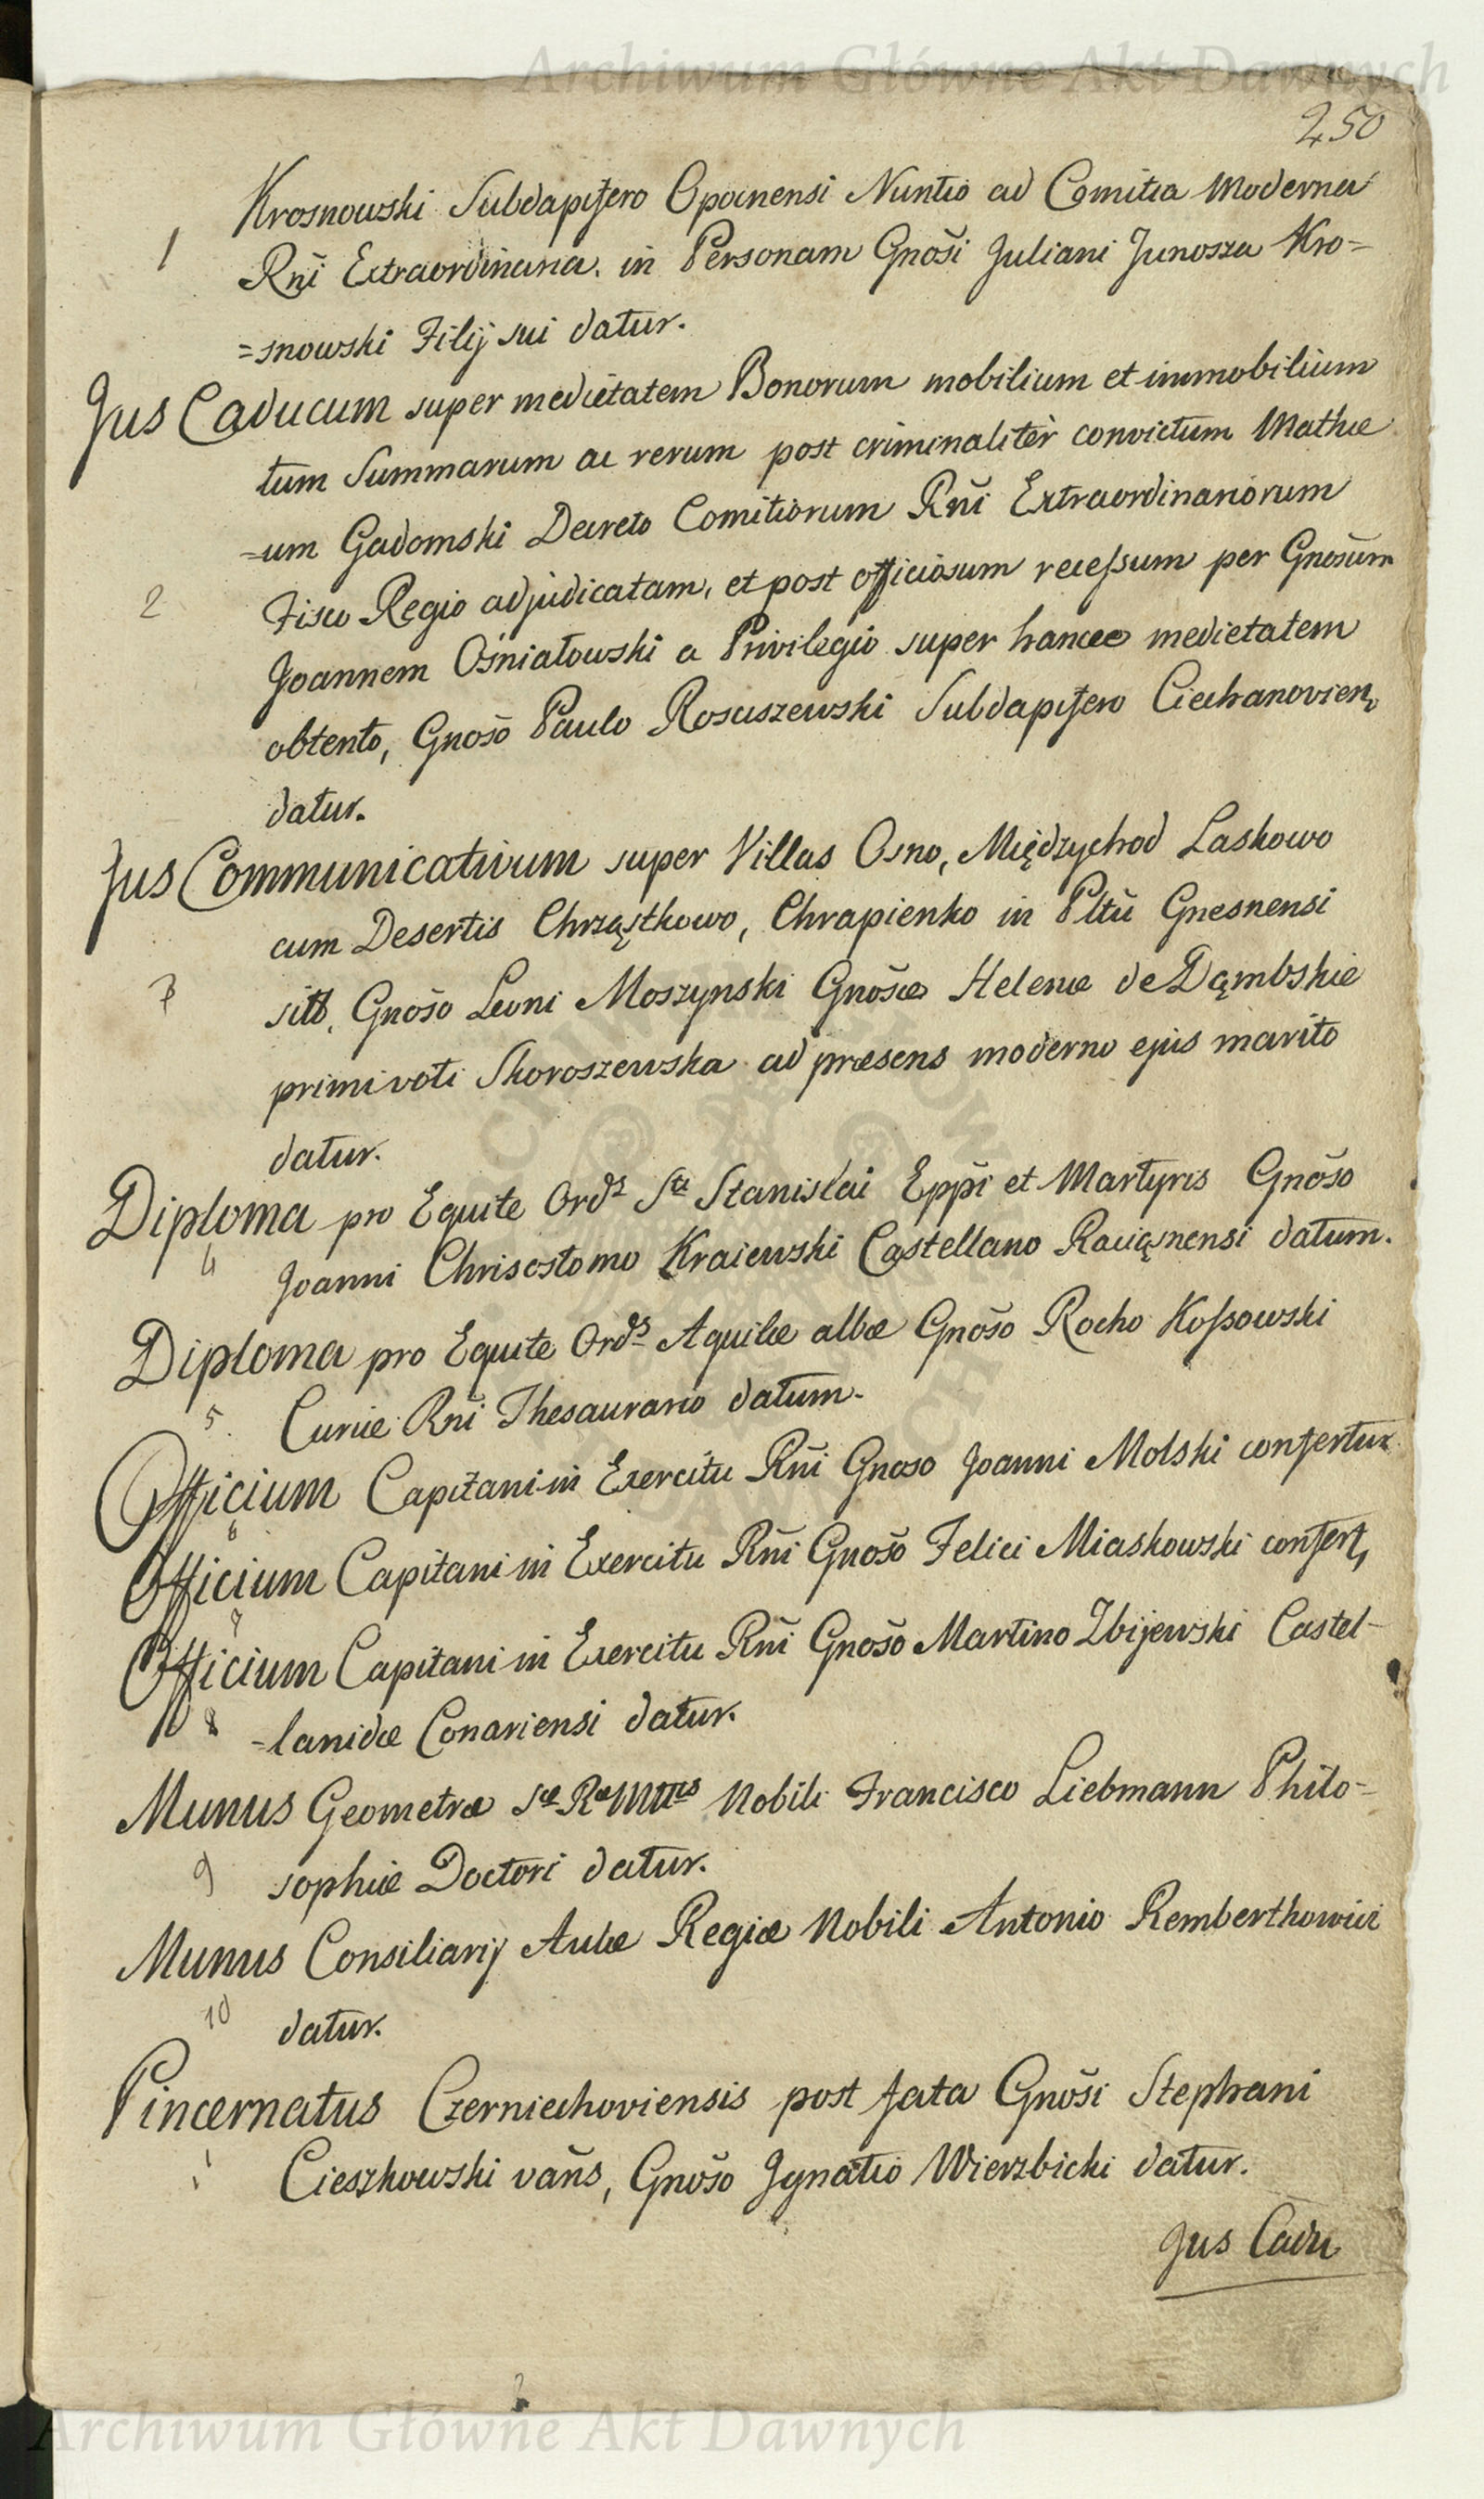 Archiwum Główne Akt Dawnych
250
Krosnowski Subdapifero Opocnensi Nuntio ad Comitia Moderna
1
Rñi Extraordinaria, in Personam Gnõsi Juliani Junosza Kro=
=snowski Filij sui datur.
Jus Caducum super medietatem Bonorum mobilium et immobilium
tum Summarum ac rerum post criminalitèr convictum Mathæ
=um Gadomski Decreto Comitiorum Rñi Extraordinariorum
2
Fisco Regio adjudicatam, et post officiosum recessum per Gnõsum
Joannem Ośniałowski a Privilegio super hancce medietatem
obtento, Gnõso Paulo Rosciszewski Subdapifero Ciechanovien,
datur.
Jus Communicativum super Villas Osno, Międzychod Laskowo
cum Desertis Chrząstkowo, Chrapienko in Pltũ Gnesnensi
3
sitis, Gnõso Leoni Moszynski Gnõsæ Helenæ de Dąmbskie
primi voti Skoroszewska ad præsens moderno ejus marito
datur.
Diploma pro Equite Ordˢ Sᵗⁱ Stanislai Eppĩ et Martyris Gnõso
4
Joanni Chrisostomo Kraiewski Castellano Raciąsnensi datum.
Diploma pro Equite Ordˢ Aquilæ albæ Gnõso Rocho Kossowski
5.
Curiæ Rñi Thesaurario datum.
Officium Capitani in Exercitu Rñi Gnoso Joanni Molski confertur
6
Officium Capitani in Exercitu Rñi Gnõso Felici Miaskowski confert,
7
Officium Capitani in Exercitu Rñi Gnõso Martino Zbijewski Castel-
8
=lanidæ Conariensi datur.
Munus Geometræ Sᵃᵉ Rᵃᵉ Mttis Nobili Francisco Liebmann Philo=
9
sophiæ Doctori datur.
Munus Consiliarij Aulæ Regiæ Nobili Antonio Remberthowicz
10
datur.
Pincernatus Czerniechoviensis post fata Gnõsi Stephani
11
Cieszkowski vañs, Gnõso Ignatio Wierzbicki datur.
Jus Cadu
Archiwum Główne Akt Dawnych